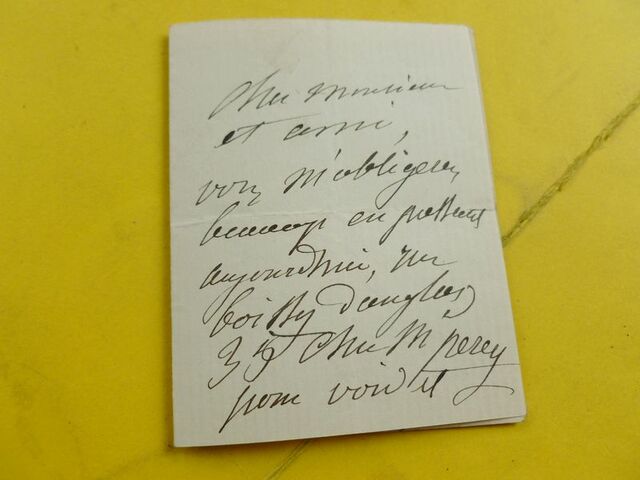 Cher Monsieur
et ami,
vous m'obligerez
beaucoup en passant
aujourd'hui, rue
boissy d'anglas
35 chez M
pour voir et